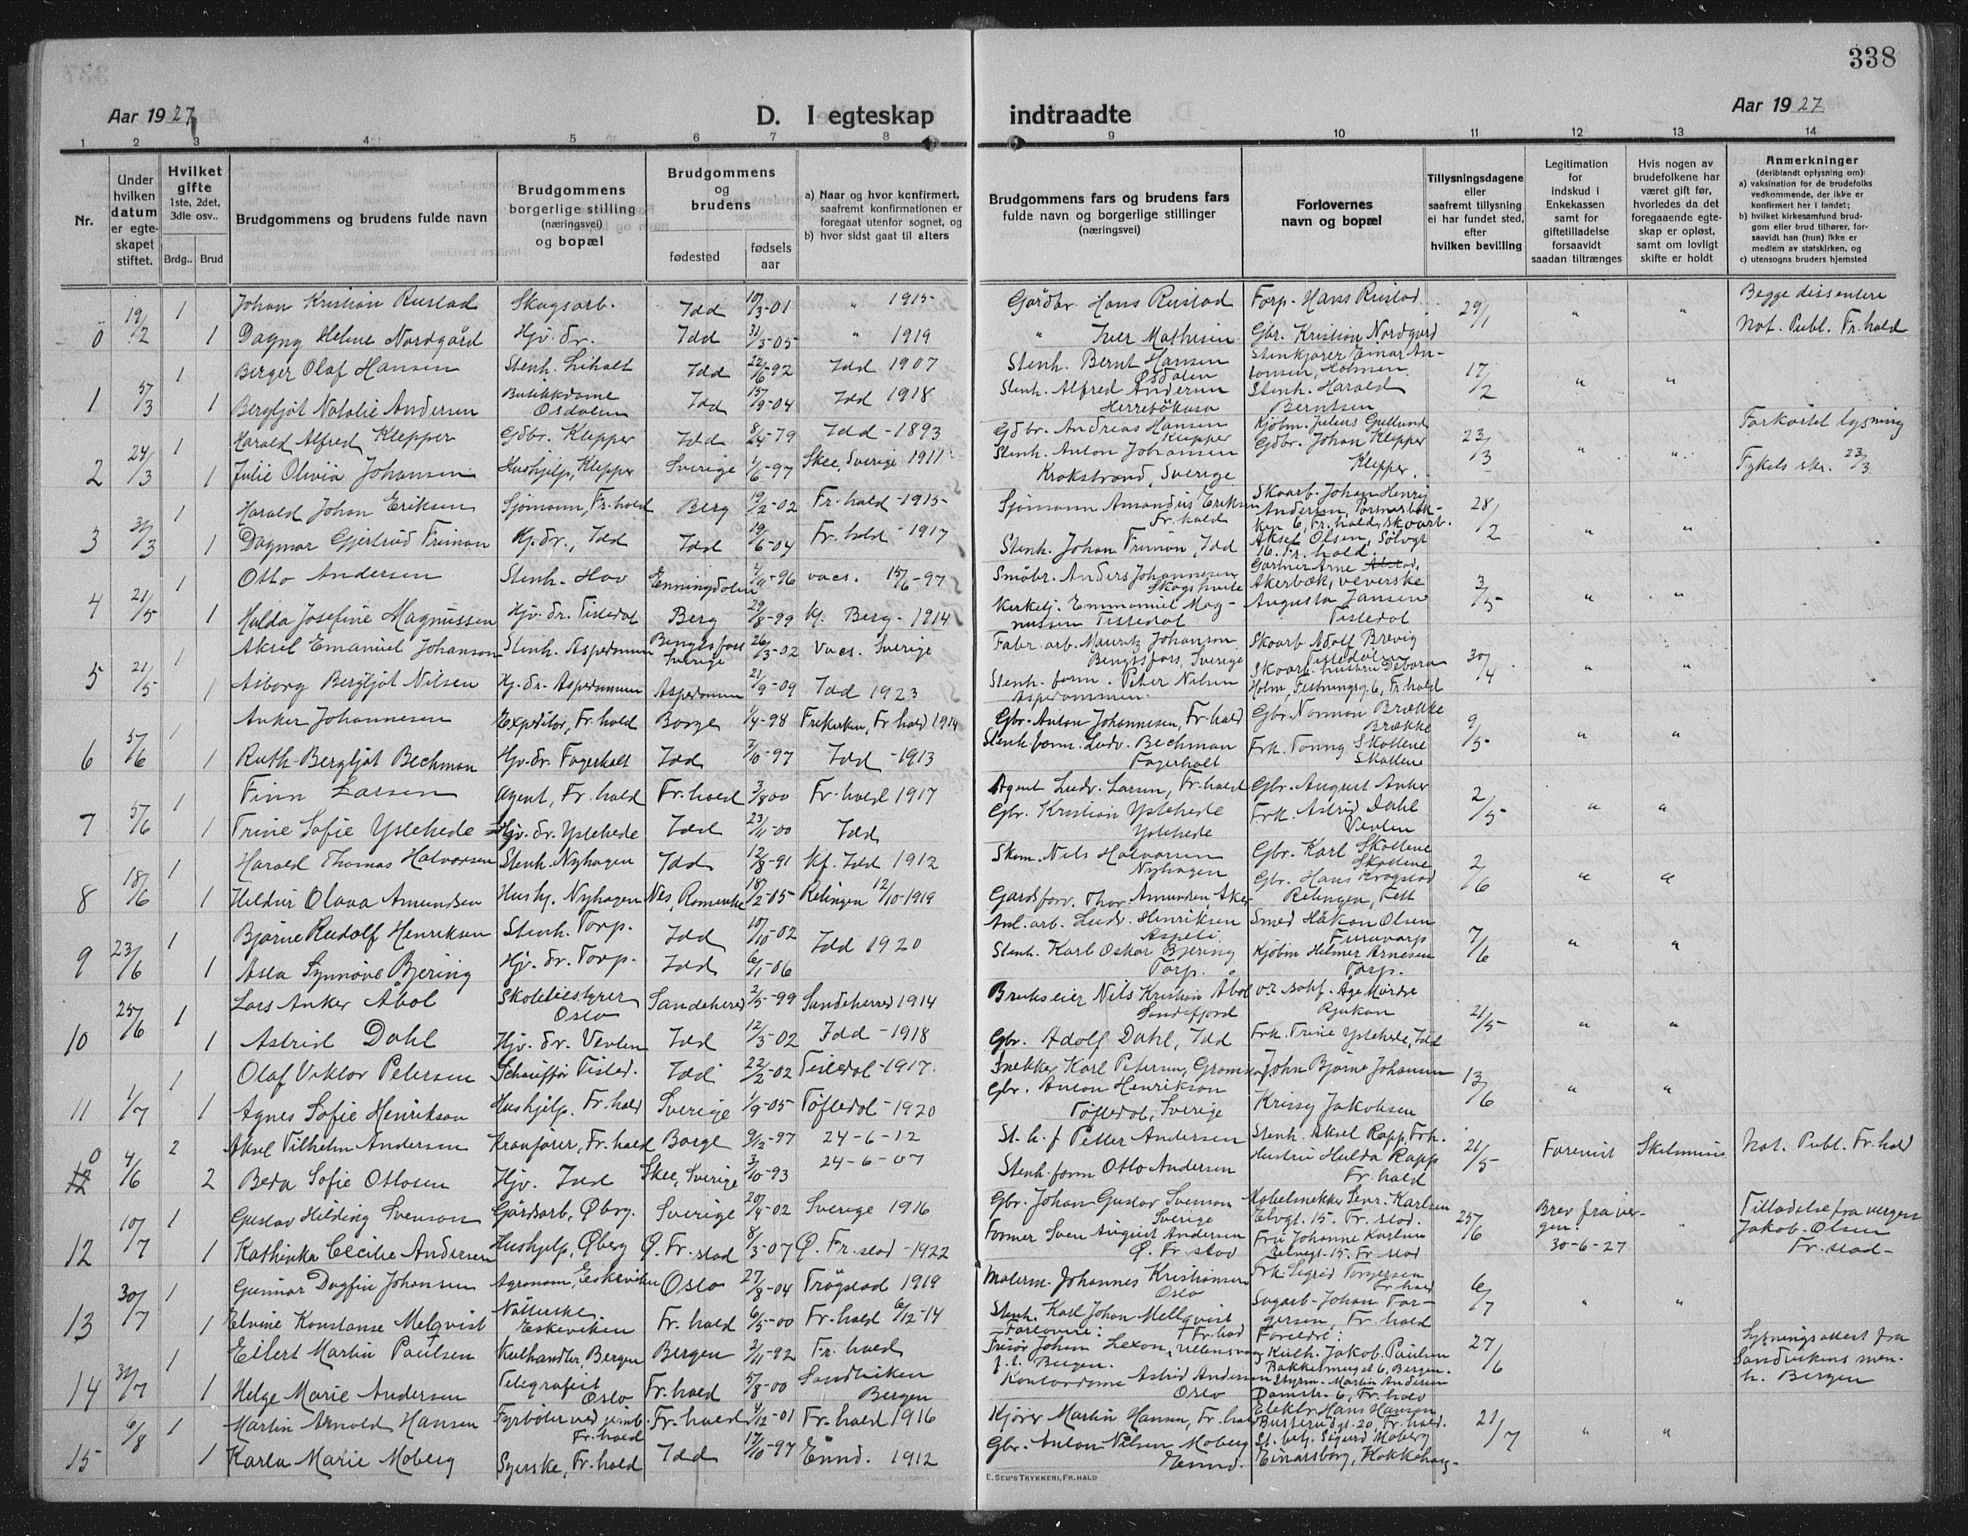 338
Aar 1927
D. I egteskap
indtraadte
Aar 1927
1 2 3 4 5 6 7 8 9 10 11 12 13 14
Nr.
Under hvilken datum er egteskapet stiftet.
Hvilket gifte 1ste, 2det, 3dle osv..
Brdg..
Brud
Brudgommens og brudens fulde navn
Brudgommens borgerlige stilling (næringsvei) og bopæl
Brudgommens og brudens
fødested
fødsels aar
a) Naar og hvor konfirmert, saafremt konfirmationen er foregaat utenfor sognet, og
b) hvor sidst gaat til alters
Brudgommens fars og brudens fars fulde navn og borgerlige stillinger (næringsvei)
Forlovernes navn og bopæl
Tillysningsdagene eller saafremt tillysning ei har fundet sted, efter hvilken bevilling
Legitimation for indskud i Enkekassen samt for giftetilladelse forsaavidt saadan tiltrænges
Hvis nogen av brudefolkene har været gift før, hvorledes da det foregaaende egteskap er opløst, samt om lovligt skifte er holdt
Anmerkninger (deriblandt oplysning om:
a) vaksination for de brudefolks vedkommende, der ikke er konfirmert her i landet;
b) hvilket kirkesamfund brudgom eller brud tilhører, forsaavidt han (hun) ikke er medlem av statskirken, og
c) utensogns bruders hjemsted
19/2 1 Johan Kristian Rustad Skogsarb. Idd 10/3-01 " 1915 Gårdbr Hans Rustad Forp. Hans Rustad 29/1 " " Begge dissentere
0 1 Dagny Helene Nordgård Hjv. dr. Idd 31/3-05 " 1919 " Iver Mathisen Gbr. Kristian Nordgård Not. Publ. Fr.hald
1 Berger Olaf Hansen Stenh. Liholt Idd 22/6-92 Idd 1907 Stenh. Bernt Hansen Osdalen Stenkjører Einar Antonsen, Holmen 17/2 " "
1 57/3 1 Bergljot Natalie Andersen Butikkdame Osdalen Idd 15/9-04 Idd 1918 Stenh. Alfred Andersen Herrebökasa Stenh. Harald Berntsen
24/3 1 Harald Alfred Klepper Gdbr. Klepper Idd 8/4-79 Idd-1893 Gdbr. Andreas Hansen Klepper Kjøbm. Julius Gullund 23/3 " " Forkortet lysning
2 1 Julie Olivia Johansen Hushjelp, Klepper Sverige 1/6-97 Skee, Sverige 1911 Stenh. Anton Johansen Krokstrand, Sverige Gdbr. Johan Klepper Klepper. Fykels skr. 23/3
31/3 1 Harald Johan Eriksen Sjömann, Fr.hald Berg 19/2-02 Fr.hald-1915 Sjømann Amandus Eriksen Fr.hald Skoarb. Johan Henry Andersen, 28/2 " "
3 1 Dagmar Gjertrud Trimon Hj. dr., Idd Idd 19/6-04 Fr.hald-1917 Stenh. Johan Trimon, Idd 6, Fr.hald, skoarb. Aksel Olsen, Sølvgt 16. Fr.hald.
1 Otto Andersen Stenh. Hov Enningdalen 4/11-96 vacs. 15/6-97 Småbr. Anders Johannesen Skogshvile Gartner Arne Akerbæk, veverske 3/5 " "
4 21/5 1 Hulda Josefine Magnussen Hjv. dr. Tistedal Berg 29/8-99 kf. Berg-1914 Kirketj. Emmanuel Magnussen Tistedal Augusta Jansen Tistedal
1 Aksel Emanuel Johanson Stenh. Aspedammen Bengtsfors Sverige 26/3-02 Vacs. Sverige Fabr. arb. Mauritz Johanson Bengtsfors, Sverige Skoarb. Adolf Brevig Tistedalen 30/4 " "
5 21/5 1 Asborg Bergljot Nilsen Hj. dr. Aspedammen Aspedammen 21/9-09 Idd 1923 Stenh. form. Peter Nilsen Aspedammen Skoarb. hustru Debora Holm, Festningsg. 6, Fr.hald
57/6 1 Anker Johannesen Expeditør, Fr.hald Borge 1/4-98 Frikirken, Fr.hald 1914 Gbr. Anton Johannesen, Fr.hald Gbr. Norman Brække Brække 9/5 " "
6 1 Ruth Bergljot Bechman Hjv. dr. Fagerholt Idd 7/10-97 Idd-1913 Stenh.form. Ludv. Bechman Fagerholt Frk. Tonny Skollene Skollene
57/6 1 Finn Larsen Agent, Fr.hald Fr.hald 3/8 00 Fr.hald 1917 Agent Ludv. Larsen, Fr.hald Gbr. August Anker 2/5 " "
7 1 Trine Sofie Ystehede Hjv. dr Ystehede Idd 23/11-00 Idd Gbr. Kristian Ystehede Ystehede Frk. Astrid Dahl Vevlen
18/6 1 Harald Thomas Halvorsen Stenh. Nyhagen Idd 12/8-91 kf. Idd 1912 Skom. Nils Halvorsen Nyhagen Gbr. Karl Skollene Skollene 2/6 " "
8 1 Hildur Olava Amundsen Hushj. Nyhagen Nes, Romerike 18/2-05 Relingen 12/10-1919 Gardsforv. Thor Amundsen, Aker Gbr. Hans Krogstad Relingen, Fett
23/6 1 Bjarne Rudolf Henriksen Stenh. Torp. Idd 10/10-02 Idd 1920 Anl. arb. Ludv. Henriksen Aspeli Smed Håkon Olsen Furuvarp 7/6 " "
9 1 Asla Synnøve Bjering Hjv. dr. Torp. Idd 6/1-06 Stenh. Karl Oskar Bjering Torp. Kjøbm Helmer Arnesen Torp.
25/6 1 Lars Anker Åbol Skolebestyrer Oslo Sandeherred 2/5-99 Sandeherred 1914 Brukseier Nils Kristian Åbol Sandefjord o.r.sakf. Åge Mürdre Rjukan 21/5 " "
10 1 Astrid Dahl Hjv. dr. Vevlen Idd 12/3-02 Idd-1918 Gbr. Adolf Dahl, Idd Frk. Trine Ystehede, Idd
1 Olaf Viktor Petersen Schauffør Tisted. Idd 22/2-02 Tistedal-1917. Snekker Karl Petersen, John Bjarne Johansen 13/6 " "
11 1/7 1 Agnes Sofie Henrikson Hushjelp. Fr.hald Sverige 1/9-05 Töftedal-1920 Gbr. Anton Henrikson Töftedal, Sverige Krissy Jakobsen
0 4/6 2 Aksel Vilhelm Andersen Kranfører, Fr.hald Borge 9/2-97 24-6-12 St. h. f Petter Andersen Stenh. Aksel Rapp, Frh. 21/5 Forevist Skilsmisse Not. Publ. Fr.hald
12 2 Beda Sofie Ottosen Hjv. Idd Skee, Sverige 3/10-93 24-6-07 Stenh.form Otto Andersen Hustru Hulda Rapp Fr.hald
10/7 1 Gustav Hilding Svenson Gårdsarb, Øberg. Sverige 20/4-02 Sverige 1916 Gbr. Johan Gustav Svenson Sverige Møbelsnekker Karlsen Elvegt. 15. Fr.stad. 25/6 Brev fra vergen. 30-6-27 " Tilladelse fra vergen
12 1 Kathinka Cecilie Andersen Hushjelp, Øberg Ø. Fr.stad 8/3-07 Ø. Fr.stad-1922 Former Sven August Andersen Ø. Fr.stad Fru Johanne Karlsen Elvegt. 15. Fr.stad Jakob Olsen Fr.stad-
30/7 1 Gunnar Dagfin Johansen Agronom, Eskeviken Oslo 27/8-04 Trøgstad 1919 Malerm. Johannes Kristiansen Oslo Frk. Sigrid Torgersen Fr.hald 6/7 " "
13 1 Elvine Konstanse Melqvist Eskeviken Fr.hald 6/5-00 Fr.hald 6/12-14 Stenh. Karl Johan Mellqvist Fr.hald Sagarb. Johan Torgersen, Fr.hald
1 Eilert Martin Paulsen Kulhandler, Bergen Bergen 2/11-92 Fr.hald Forlovere: Frisør Johan Lexon, Bergen. Foreldre: Kulh. Jakob Paulsen Bakkesmuget 6, Bergen. 27/6 Lysningsattest fra
14 31/7 1 Helge Marie Andersen Telegrafist Oslo Fr.hald 5/8-00 Sandviken Bergen Kontordame Astrid Andersen Oslo Styrm. Martin Andersen Damstr. 6, Fr.hald Sandvikens men-h. Bergen
6/8 1 Martin Arnold Hansen Fyrbøter ved jernb. Fr.hald Fr.hald 4/12-01 Fr.hald 1916 Kjører Martin Hansen, Fr.hald Elektr. Hans Hansen Busterudgt. 20, Fr.hald. 21/7 " "
15 1 Karla Marie Moberg Syerske, Fr.hald Idd 17/10-97 Ennd. 1912 Gbr. Anton Nilsen Moberg Ennd. St. betj. Sigurd Moberg Einarsborg, Kokkehaug-
E. SEM'S TRYKKERI, FR.HALD